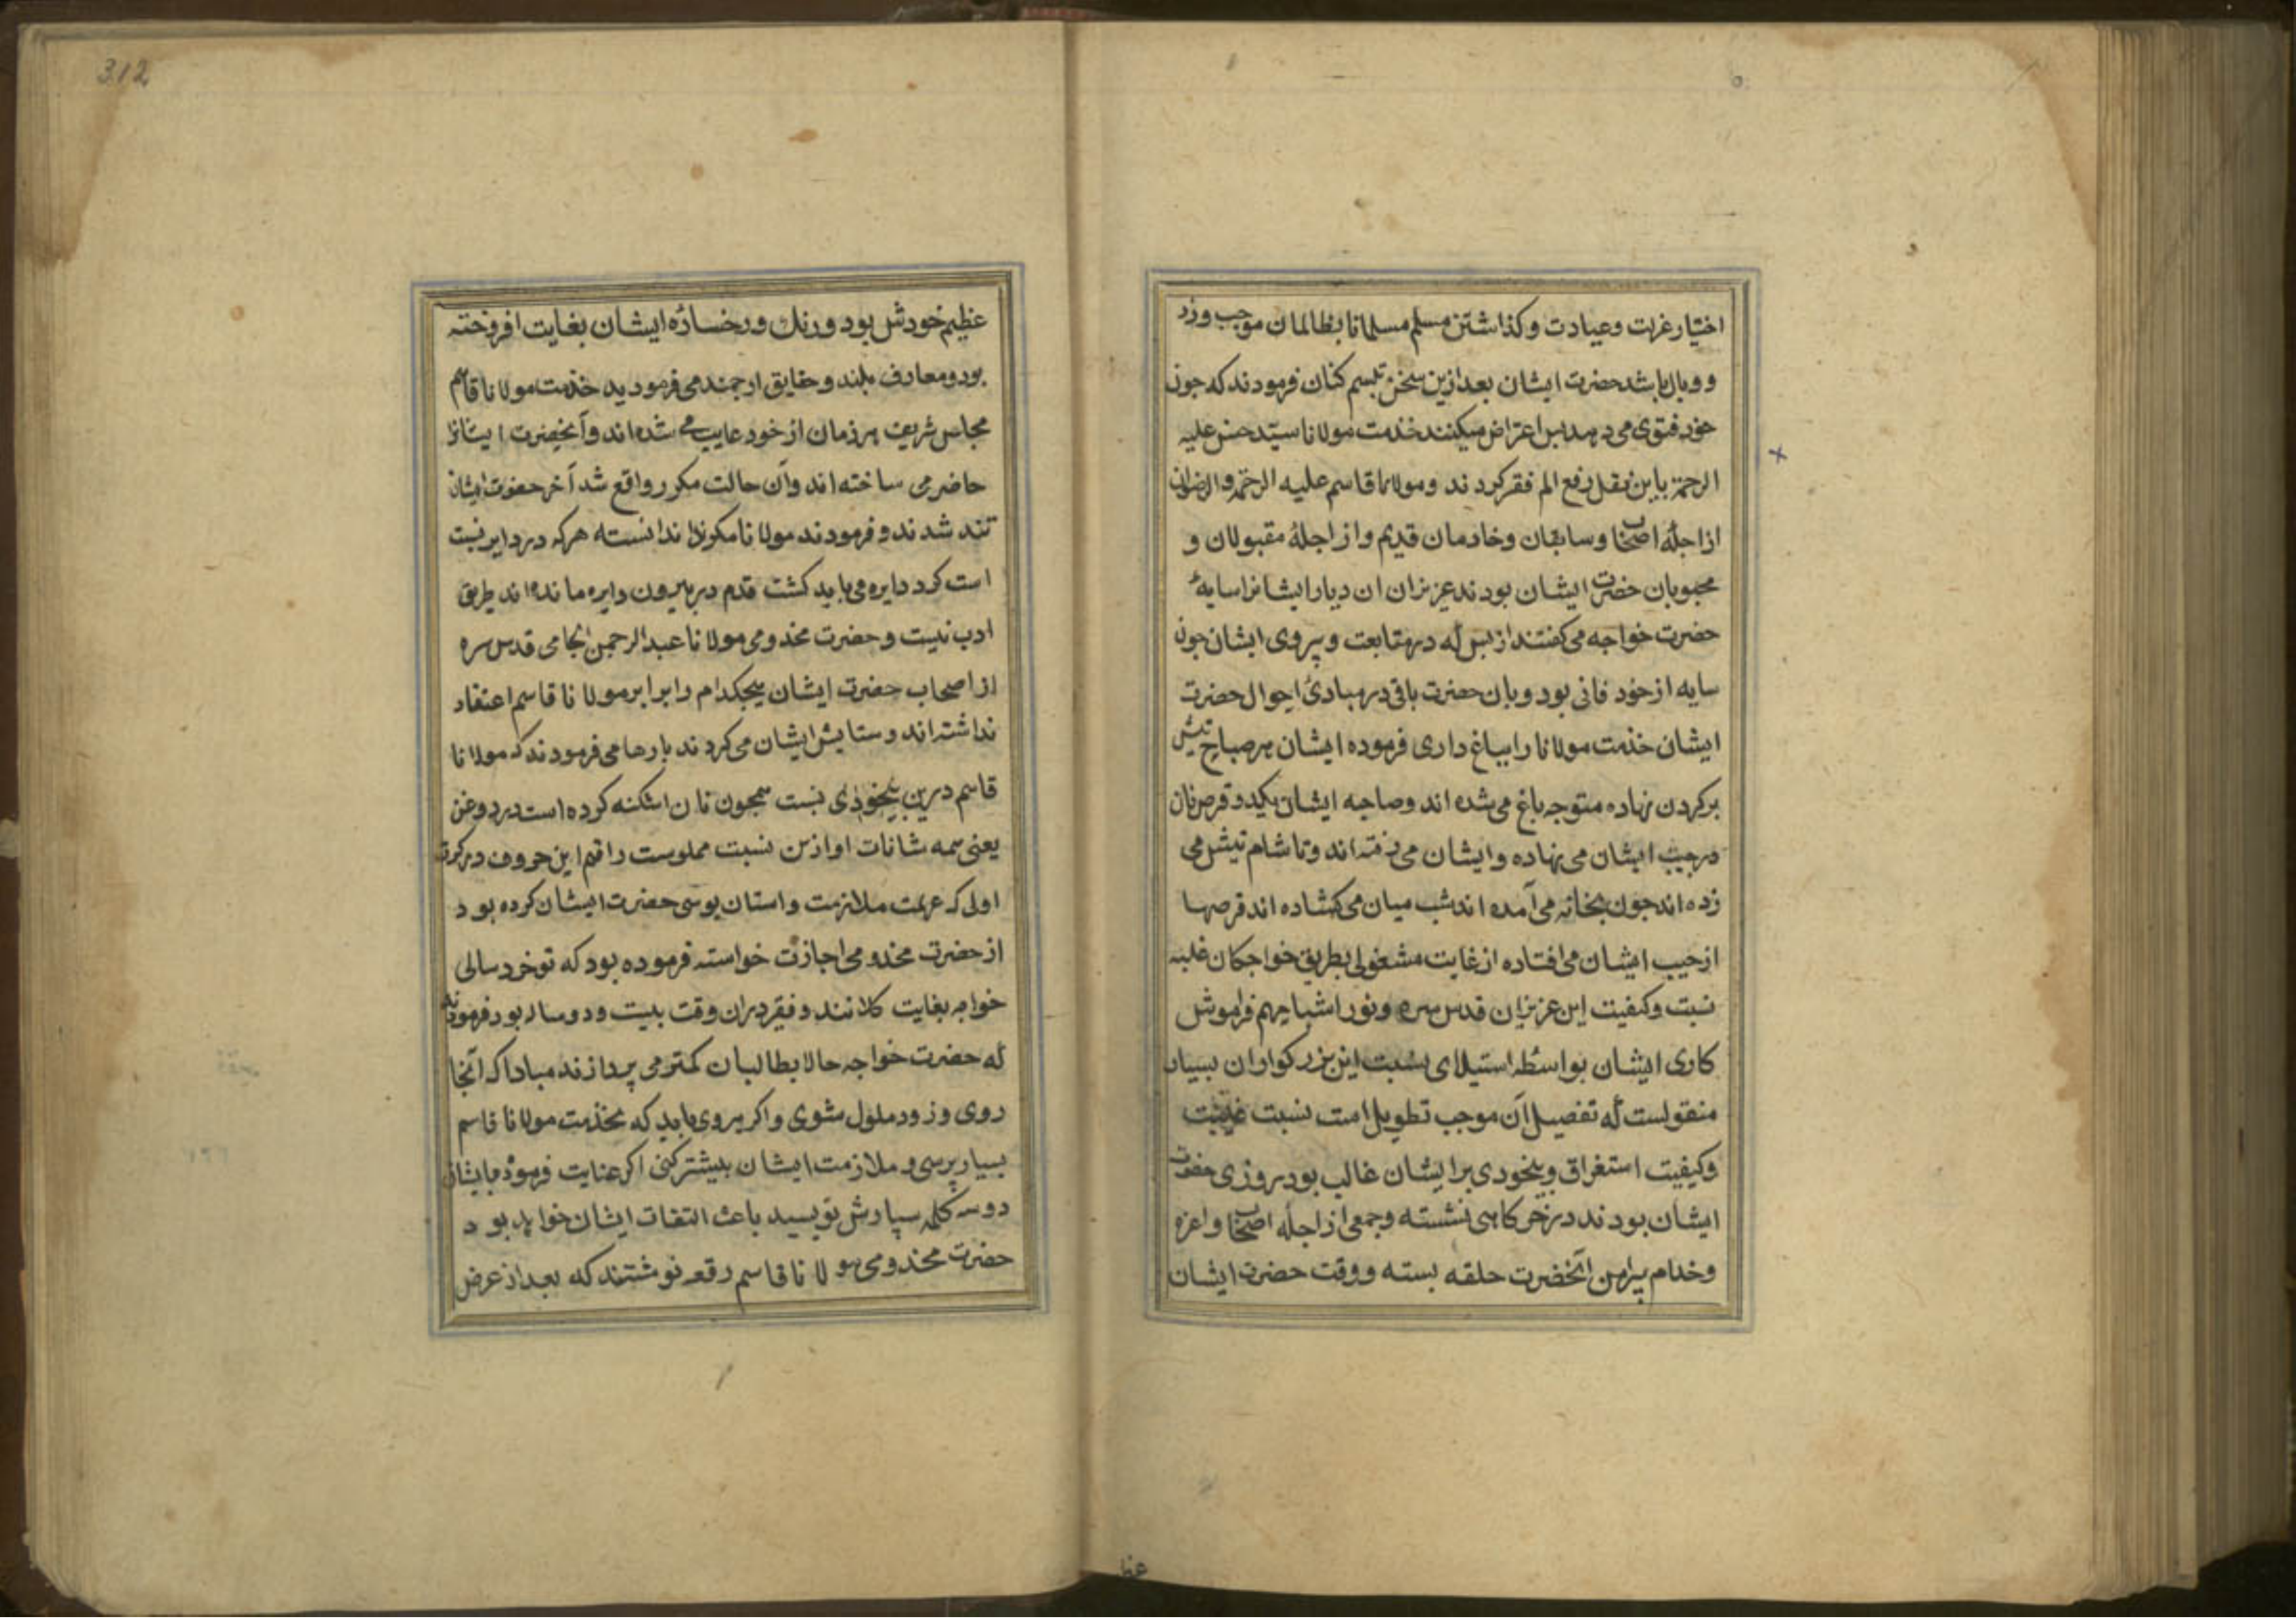 اختیار عزلت و عبادت و کذاشتن مسلم مسلمانا بظالمان موجب وزر
و وبال باشد حضرت ایشان بعد ازین سخن تبسم کنان فرمودند که جون
خود فتوی می دهد بس اعتراض میکنند خذمت مولانا سید حسن علیه
الرحمة باین نقل رفع الم فقر کردند و مولانا قاسم علیه الرحمة والرضوان
از اجلهٔ اصحاب و سابقان و خادمان قدیم و از اجلهٔ مقبولان و
محبوبان حضرت ایشان بودند عزیزان ان دیار ایشانرا سایهٔ
حضرت خواجه می کفتند از بس که در متابعت و پیروی ایشان جون
سایه از خود فانی بود و بان حضرت باقی در مبادئ احوال حضرت
ایشان خذمت مولانا را بباغ داری فرموده ایشان هر صباح تیش
بر کردن نهاده متوجه باغ می شده اند و صاحبه ایشان یکدو قرص نان
در جیب ایشان می نهاده و ایشان می رفته اند و تا شام تیش می
زده اند جون بخانه می آمده اند شب میان می کشاده اند قرصها
از جیب ایشان می افتاده از غایت مشغولی بطریق خواجکان غلبه
نسبت و کیفیت این عزیزان قدس سره و نور اشباحهم فراموش
کاری ایشان بواسطه استیلای نسبت این بزرکواران بسیار
منقولست که تفصیل آن موجب تطویل است نسبت غیبت
و کیفیت استغراق و بیخودی بر ایشان غالب بود روزی حضرت
ایشان بودند در خرکاهی نشسته و جمعی از اجله اصحاب و اعزه
و خدام پیرامن آنحضرت حلقه بسته و وقت حضرت ایشان
عظ
312
عظیم خودش بود و رنك و رخسارهٔ ایشان بغایت افروخته
بود و معارف بلند و حقایق ارجمند می فرمودید خذمت مولانا قاسم
مجلس شریف هر زمان از خود غایب می شده اند و آنحضرت ایشانرا
حاضر می ساخته اند و آن حالت مکرر واقع شد آخر حضرت ایشان
تند شدند و فرمودند مولانا مکونذا ندانسته هرکه در دایر نیست
است کرد دایره می باید کشت قدم در بیرون دایره مانده اند طریق
ادب نیست و حضرت مخدومی مولانا عبدالرحمن الجامی قدس سره
از اصحاب حضرت ایشان هیجکدام را برابر مولانا قاسم اعتقاد
نداشته اند و ستایش ایشان می کردند بارها می فرمودند که مولانا
قاسم درین بیخودی نسبت همجون نان اشکنه کرده است در روغن
یعنی همه شانات او ازین نسبت مملوست راقم این حروف در کرت
اولی که عزیمت ملازمت و استان بوسی حضرت ایشان کرده بود
از حضرت مخدومی اجازت خواسته فرموده بود که تو خرد سالی
خواجه بغایت کلانند و فقیر دران وقت بیست و دو ساله بود فرمودند
که حضرت خواجه حالا بطالبان کمتر می پردازند مبادا که آنجا
روی و زود ملول شوی و اکر میروی باید که بخذمت مولانا قاسم
بسیار برسی و ملازمت ایشان بیشتر کنی اکر عنایت فرموده بایشان
دو سه کلمه سپارش نویسید باعث التفات ایشان خواهد بود
حضرت مخدومی بمولانا قاسم رقعه نوشتند که بعد از عرض